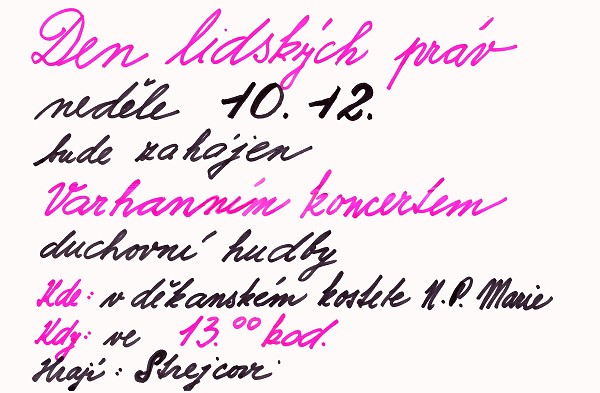 Den lidských práv
neděle 10. 12.
bude zahájen
Varhanním koncertem
duchovní hudby
Kde: v děkanském kostele N.P. Marie
Kdy: ve 13.⁰⁰ hod.
Hrají: Strejcovi